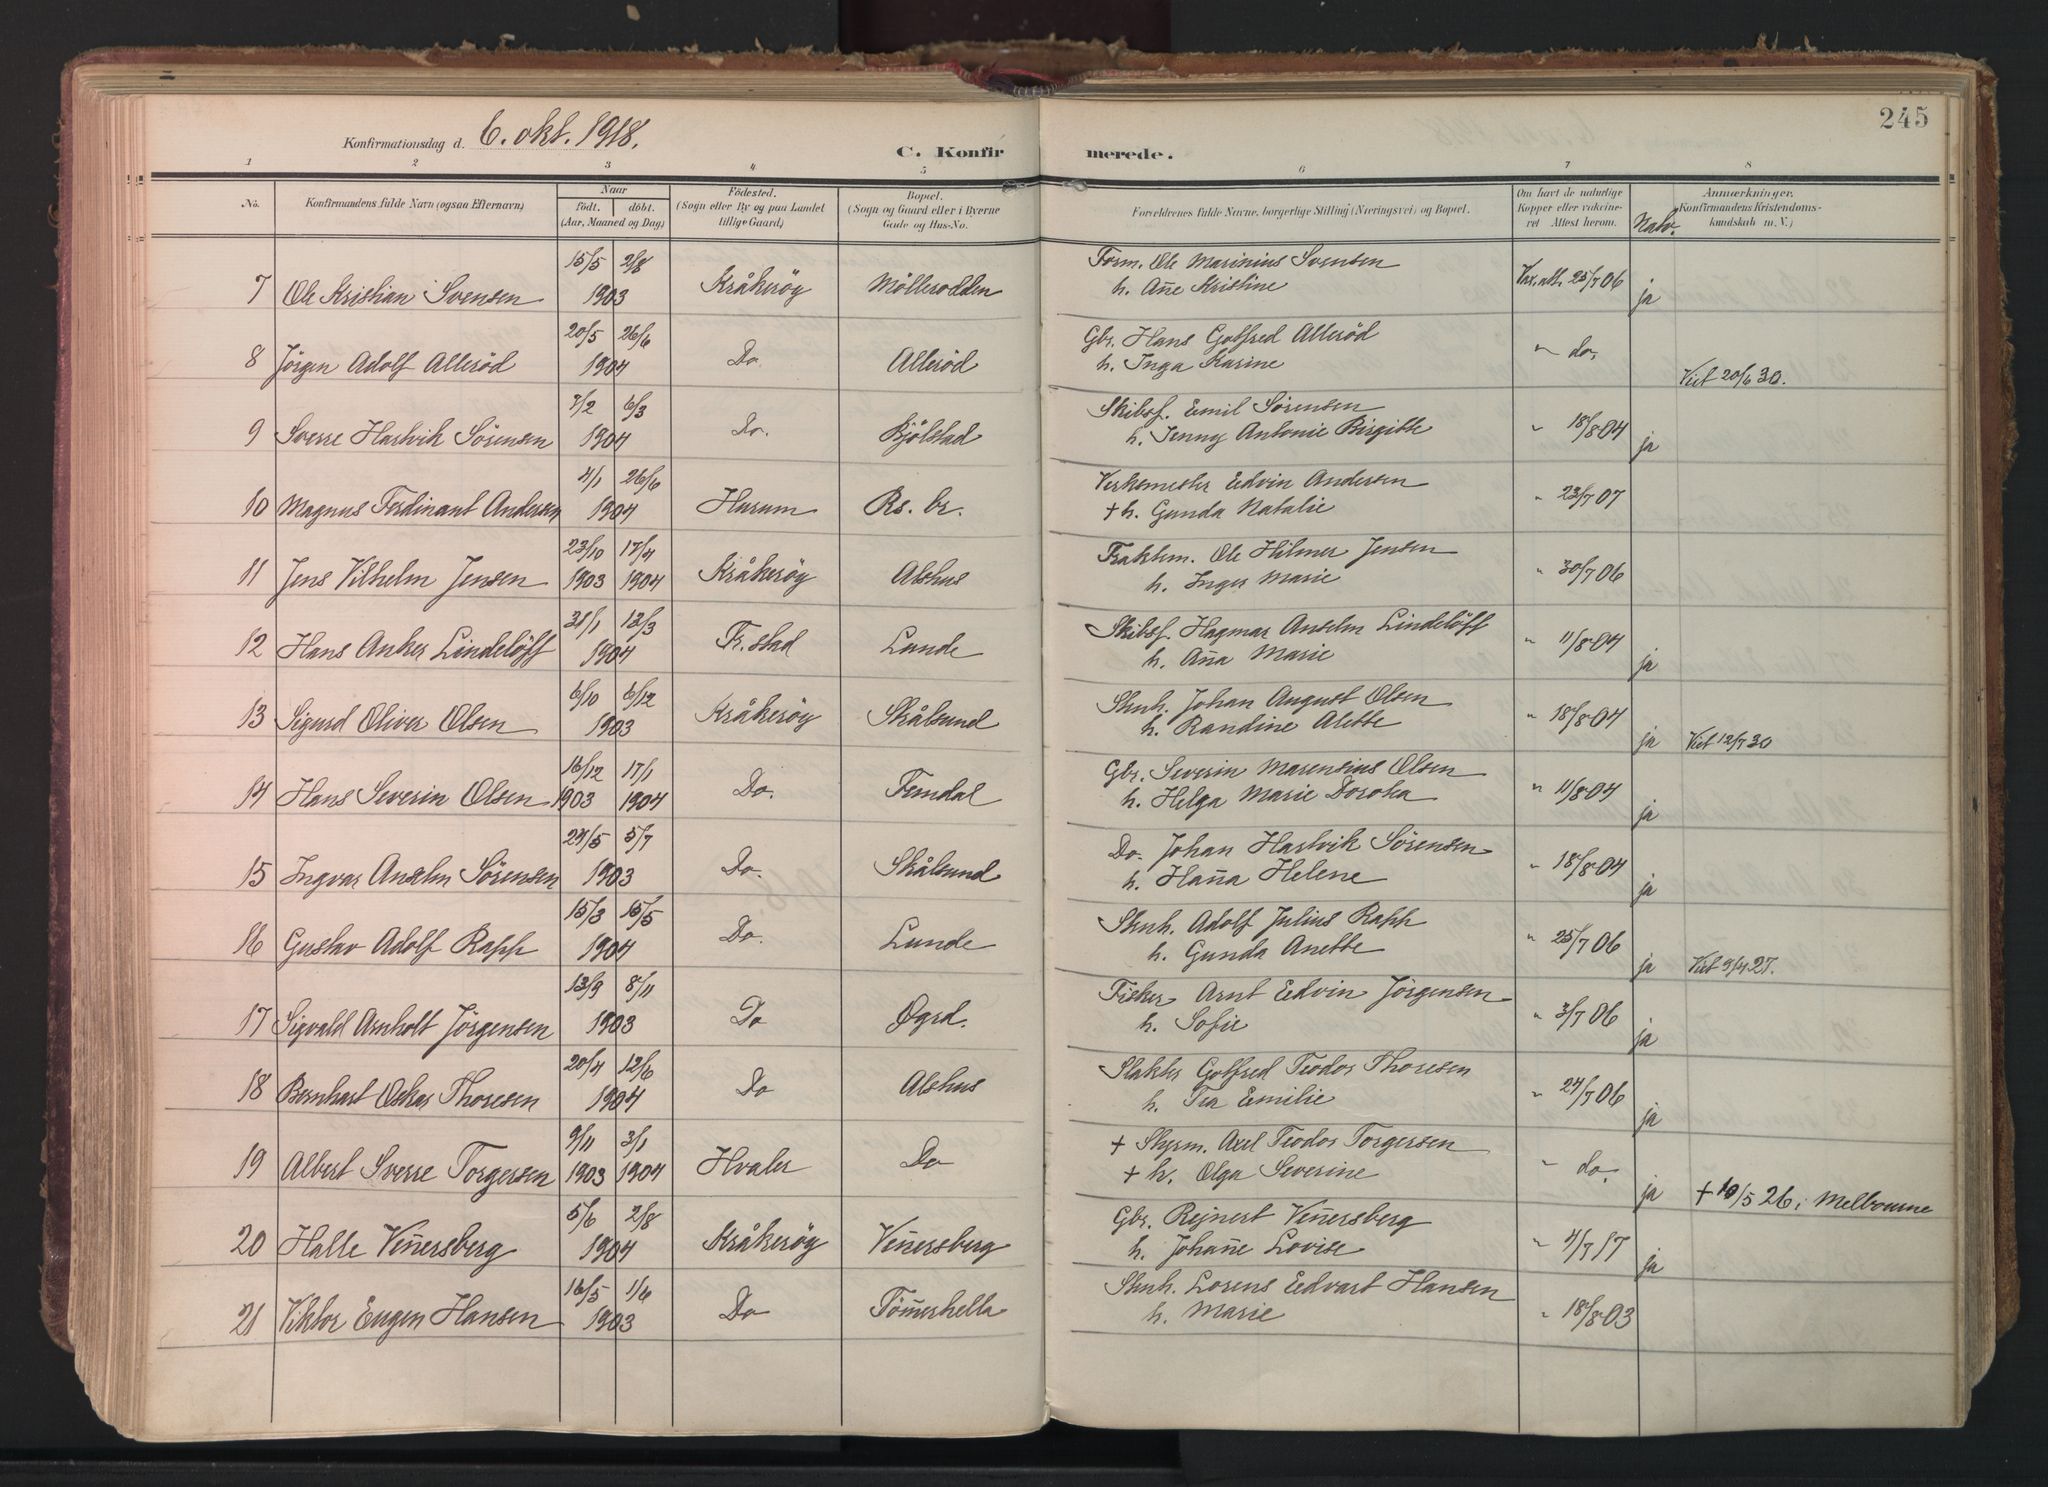 245
Konfirmationsdag d. 6. okt. 1918.
C. Konfirmerede.
1 2 3 4 5 6 7 8
No. Konfirmandens fulde Navn (ogsaa Efternavn) Naar født. døbt. (Aar, Maaned og Dag) Fødested. (Sogn eller By og paa Landet tillige Gaard) Bopæl. (Sogn og Gaard eller i Byerne Gade og Hus-No. Forældrenes fulde Navne, borgerlige Stilling (Næringsvei) og Bopæl. Om havt de naturlige Kopper eller vakcineret Attest herom. Natv. Anmærkninger. Konfirmandens Kristendomskundskab m. V.)
15/5 2/8 Form. Ole Marinius Svensen
7 Ole Kristian Svensen 1903 Kråkerøy Möllerodden h. Ane Kristine Vax. att. 25/7 06 ja
20/5 26/6 Gbr. Hans Golfred Alleröd
8 Jörgen Adolf Alleröd 1904 Do. Alleröd h. Inga Karine " do. Viet 20/6 30.
7/2 6/3 Skibsf. Emil Sørensen
9 Sverre Hartvik Sörensen 1904 Do. Kjölstad h. Jenny Antonie Birgitte " 18/8 04 ja
4/1 26/6 Verkemester Edvin Andersen
10 Magnus Ferdinant Andersen 1904 Hurum Rs. br. + h. Gunda Natalie " 23/7 07
23/10 17/4 Fraktem. Ole Hilmer Jensen
11 Jens Vilhelm Jensen 1903 1904 Kråkerøy Alshus h. Inger Marie " 30/7 06
31/1 13/3 Skibsf. Hagmar Anselm Lindelöff
12 Hans Anker Lindelöff 1904 Fr.stad Lunde h. Ana Marie " 11/8 04 ja
6/10 6/12 Stenh. Johan August Olsen
13 Sigurd Oliver Olsen 1903 Kråkerøy Skålsund h. Randine Alette " 18/8 04 ja Viet 12/7 30
16/12 17/1 Gbr. Severin Marensius Olsen
14 Hans Severin Olsen 1903 1904 Do. Femdal h. Helga Marie Dorotea " 11/8 04 ja
24/5 5/7 Do. Johan Hartvik Sörensen
15 Ingvar Anselm Sörensen 1903 Do. Skålsund h. Hana Helene " 18/8 04 ja
15/3 15/5 Stenh. Adolf Julius Rapp
16 Gustav Adolf Rapp 1904 Do. Lunde h. Gunda Anette " 25/7 06 ja Viet 9/4 27.
13/9 8/11 Fisker Arnt Edvin Jörgensen
17 Sigvald Arnholt Jörgensen 1903 Do Øgrd. h. Sofie " 3/7 06 ja
20/4 12/6 Slakter Golfred Teodor Thoresen
18 Bernhart Oskar Thoresen 1904 Do Alshus h. Tea Emilie " 24/7 06 ja
9/11 3/1 + Styrm. Axel Teodor Torgersen
19 Albert Sverre Torgersen 1903 1904 Hvaler Do + h. Olga Severine " do. ja + 10/5 26 i Melbourne
5/6 2/8 Gbr. Rejnert Venersberg
20 Halle Venersberg 1904 Kråkerøy Venersberg h. Johane Lovise " 4/7 17 ja
16/5 1/6 Stenh. Lorens Edvart Hansen
21 Viktor Eugen Hansen 1903 Do Tömerhella h. Marie " 18/8 03